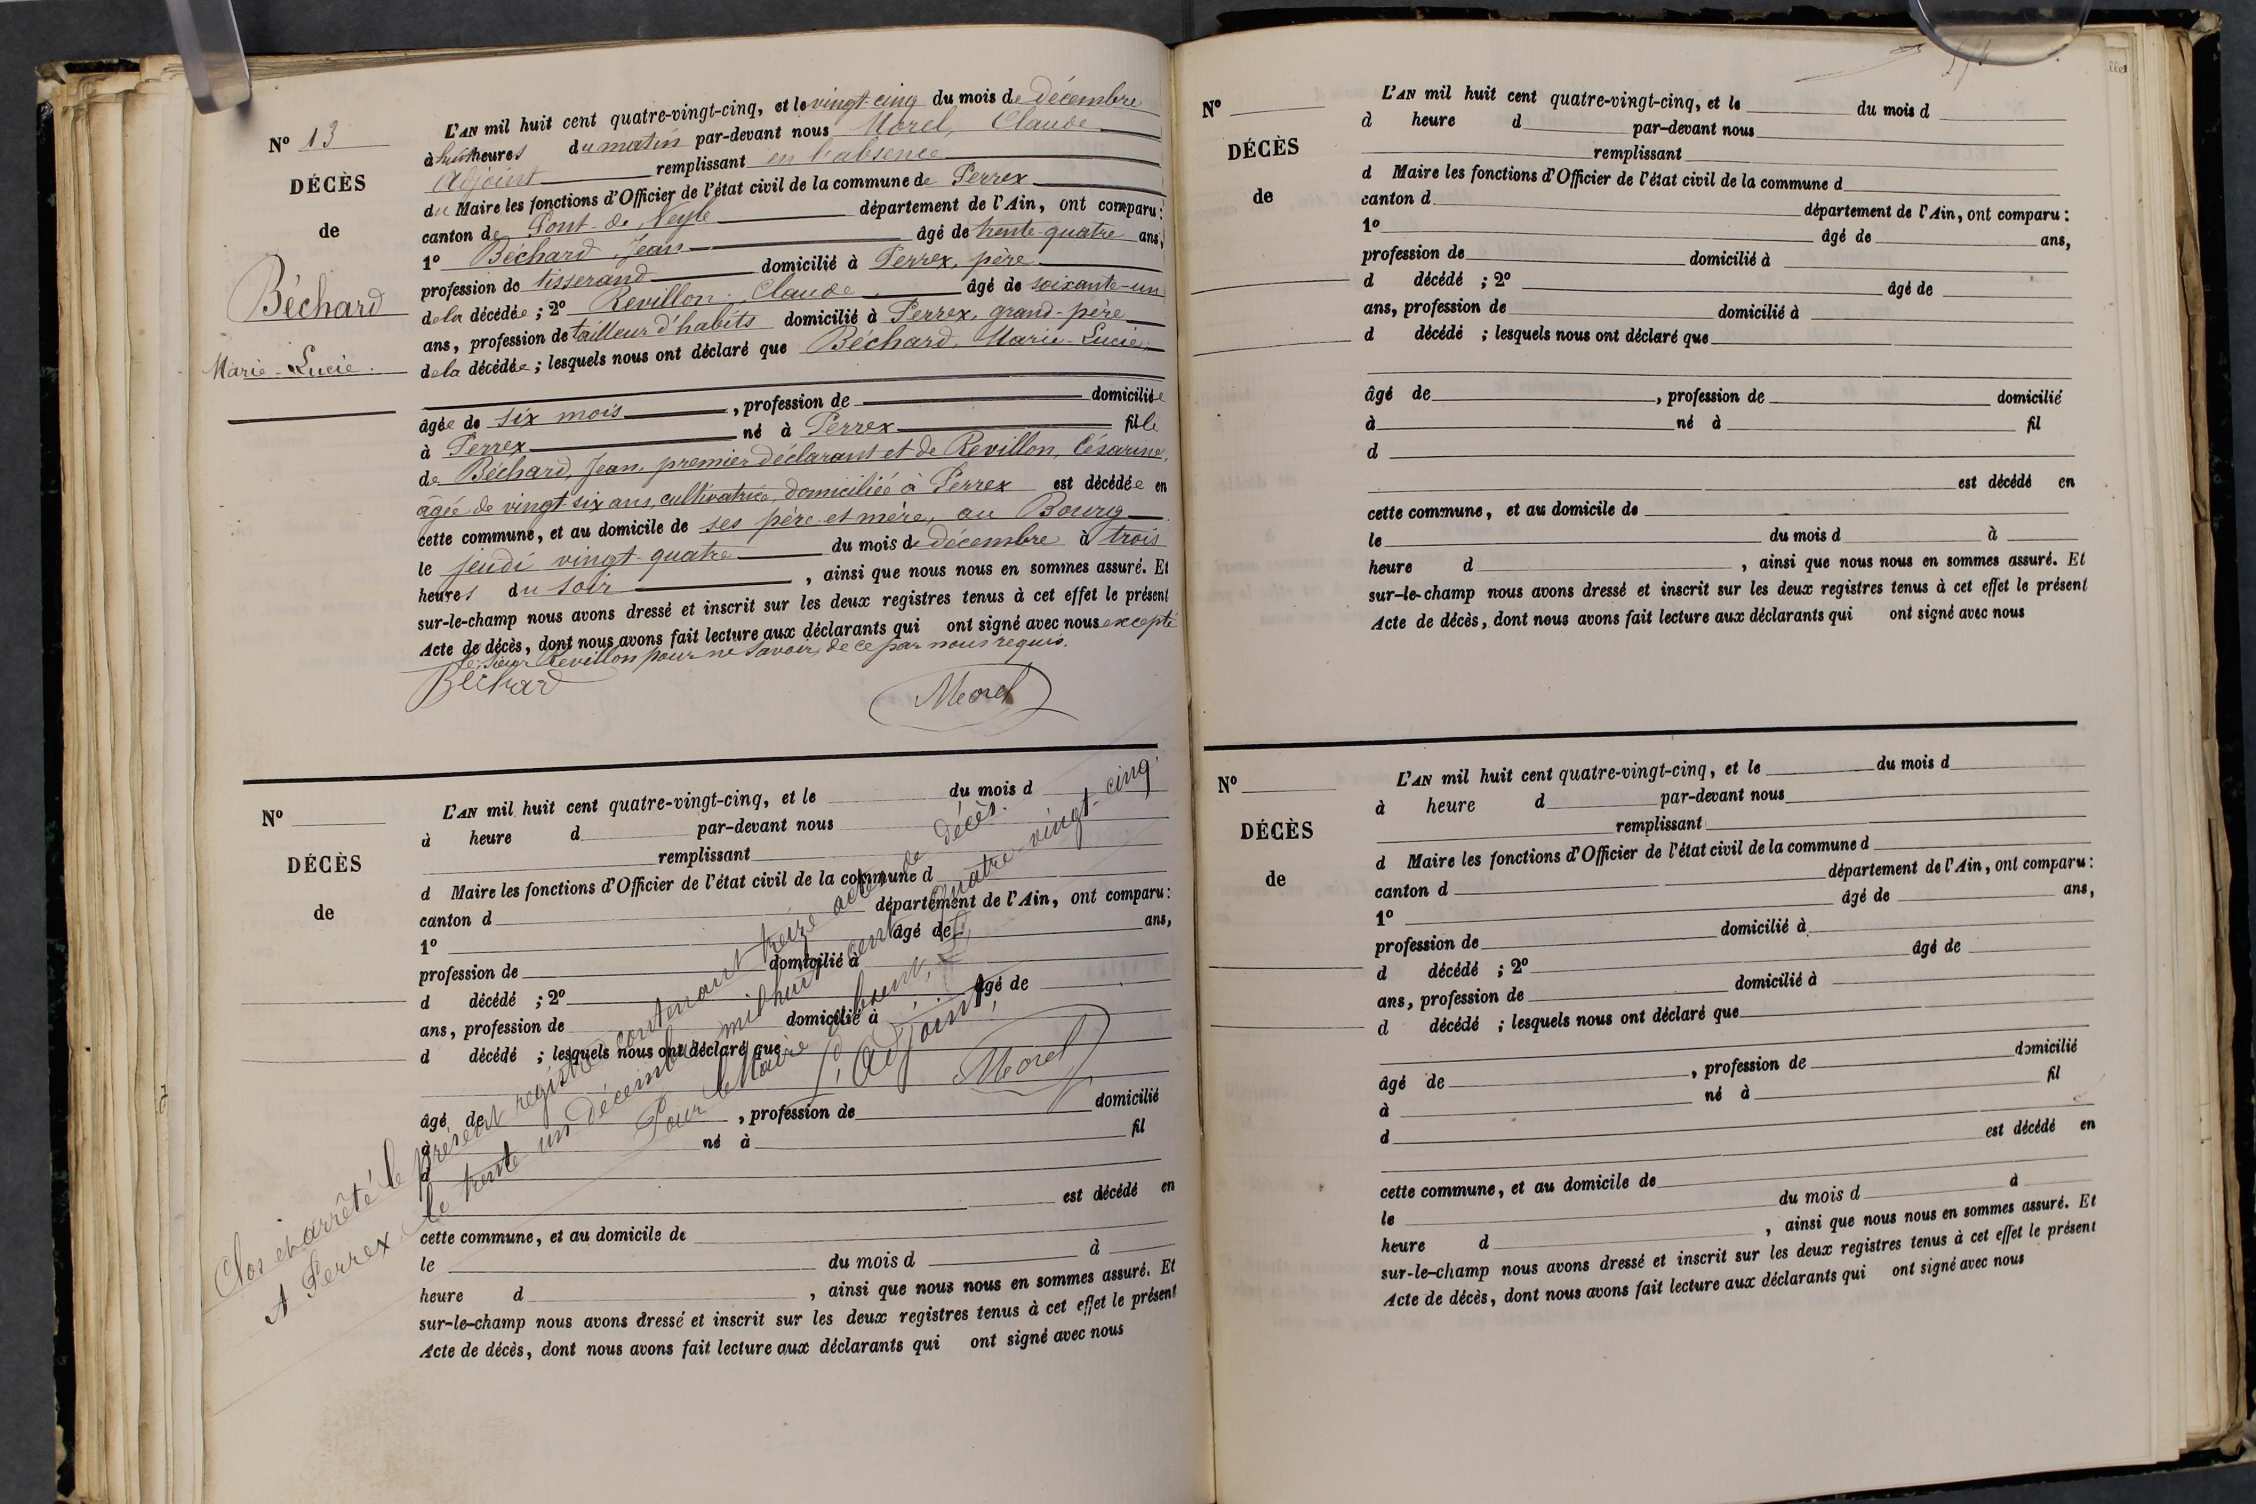 N° 13
DÉCÈS
de
Béchard
Marie-Lucie.
L'AN mil huit cent quatre-vingt-cinq, et le vingt-cinq du mois de décembre
à huit heures du matin par-devant nous Morel, Claude
Adjoint remplissant en l'absence
du Maire les fonctions d'Officier de l'état civil de la commune de Perrex
canton de Pont-de-Veyle département de l'Ain, ont comparu:
1° Béchard, Jean âgé de trente-quatre ans,
profession de tisserand domicilié à Perrex, père
de la décédée; 2° Revillon, Claude, âgé de soixante-un
ans, profession de tailleur d'habits domicilié à Perrex, grand-père
de la décédée; lesquels nous ont déclaré que Béchard, Marie-Lucie,
âgée de six mois, profession de domiciliée
à Perrex né à Perrex fille
de Béchard, Jean, premier déclarant et de Revillon, Césarine,
âgée de vingt-six ans, cultivatrice, domiciliée à Perrex est décédée en
cette commune, et au domicile de ses père et mère, au Bourg
le jeudi vingt-quatre du mois de décembre à trois
heures du soir, ainsi que nous nous en sommes assuré. Et
sur-le-champ nous avons dressé et inscrit sur les deux registres tenus à cet effet le présent
Acte de décès, dont nous avons fait lecture aux déclarants qui ont signé avec nous excepté
le sieur Revillon pour ne savoir, de ce par nous requis.
Béchard
Morel
N°
DÉCÈS
de
L'AN mil huit cent quatre-vingt-cinq, et le du mois d
à heure d par-devant nous
remplissant
d Maire les fonctions d'Officier de l'état civil de la commune d
canton d département de l'Ain, ont comparu:
1° âgé de ans,
profession de domicilié à
d décédé ; 2° âgé de
ans, profession de domicilié à
d décédé ; lesquels nous ont déclaré que
âgé de , profession de domicilié
à né à fil
d
est décédé en
cette commune, et au domicile de
le du mois d à
heure d , ainsi que nous nous en sommes assuré. Et
sur-le-champ nous avons dressé et inscrit sur les deux registres tenus à cet effet le présent
Acte de décès, dont nous avons fait lecture aux déclarants qui ont signé avec nous
Clos et arrêté le présent registre contenant treize actes de décès.
A Perrex le trente-un décembre mil huit cent quatre-vingt-cinq.
Pour le Maire absent,
L'Adjoint,
Morel
N°
DÉCÈS
de
L'AN mil huit cent quatre-vingt-cinq, et le du mois d
à heure d par-devant nous
remplissant
d Maire les fonctions d'Officier de l'état civil de la commune d
canton d département de l'Ain, ont comparu:
1° âgé de ans,
profession de domicilié à
d décédé ; 2° âgé de
ans, profession de domicilié à
d décédé ; lesquels nous ont déclaré que
âgé de , profession de domicilié
à né à fil
d
est décédé en
cette commune, et au domicile de
le du mois d à
heure d , ainsi que nous nous en sommes assuré. Et
sur-le-champ nous avons dressé et inscrit sur les deux registres tenus à cet effet le présent
Acte de décès, dont nous avons fait lecture aux déclarants qui ont signé avec nous
N°
DÉCÈS
de
L'AN mil huit cent quatre-vingt-cinq, et le du mois d
à heure d par-devant nous
remplissant
d Maire les fonctions d'Officier de l'état civil de la commune d
canton d département de l'Ain, ont comparu:
1° âgé de ans,
profession de domicilié à
d décédé ; 2° âgé de
ans, profession de domicilié à
d décédé ; lesquels nous ont déclaré que
âgé de , profession de domicilié
à né à fil
d
est décédé en
cette commune, et au domicile de
le du mois d à
heure d , ainsi que nous nous en sommes assuré. Et
sur-le-champ nous avons dressé et inscrit sur les deux registres tenus à cet effet le présent
Acte de décès, dont nous avons fait lecture aux déclarants qui ont signé avec nous